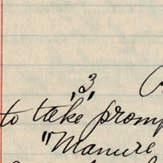 ,3,
to take promp
"Manure